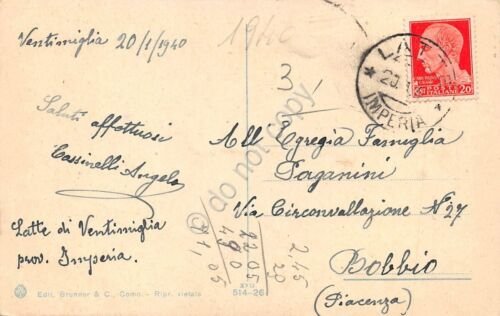 Ventimiglia 20/1/1940
1940
3,
Saluti affettuosi
Cassinelli Angelo
Latte di Ventimiglia
prov. Imperia.
LATTE
20.
IMPERIA
POSTE ITALIANE 20
All Egregia Famiglia
Paganini
Via Circonvallazione N°27
Bobbio
(Piacenza)
2,45
20
2205
490
71,05
© do not copy
Edit. Brunner & C., Como. - Ripr. vietata
XVII
514-26